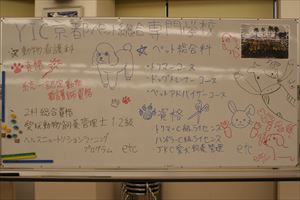 YIC京都ペット総合専門学校
動物看護科
資格
統一認定動物
看護師資格
2H総合資格
愛玩動物飼養管理士 1・2級
ヘルスニュートリションラーニング
プログラム etc
ペット総合科
・トリマーコース
・ドッグトレーナーコース
・ペットアドバイザーコース
資格
トリマーC級ライセンス
ハンドラーC級ライセンス
JKC愛犬飼育管理 etc